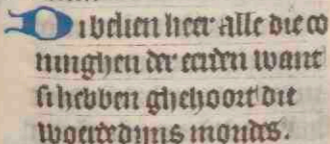 Di belien heer alle die co
ninghen der eerden want
si hebben ghehoort die
woerde dijns mondes.